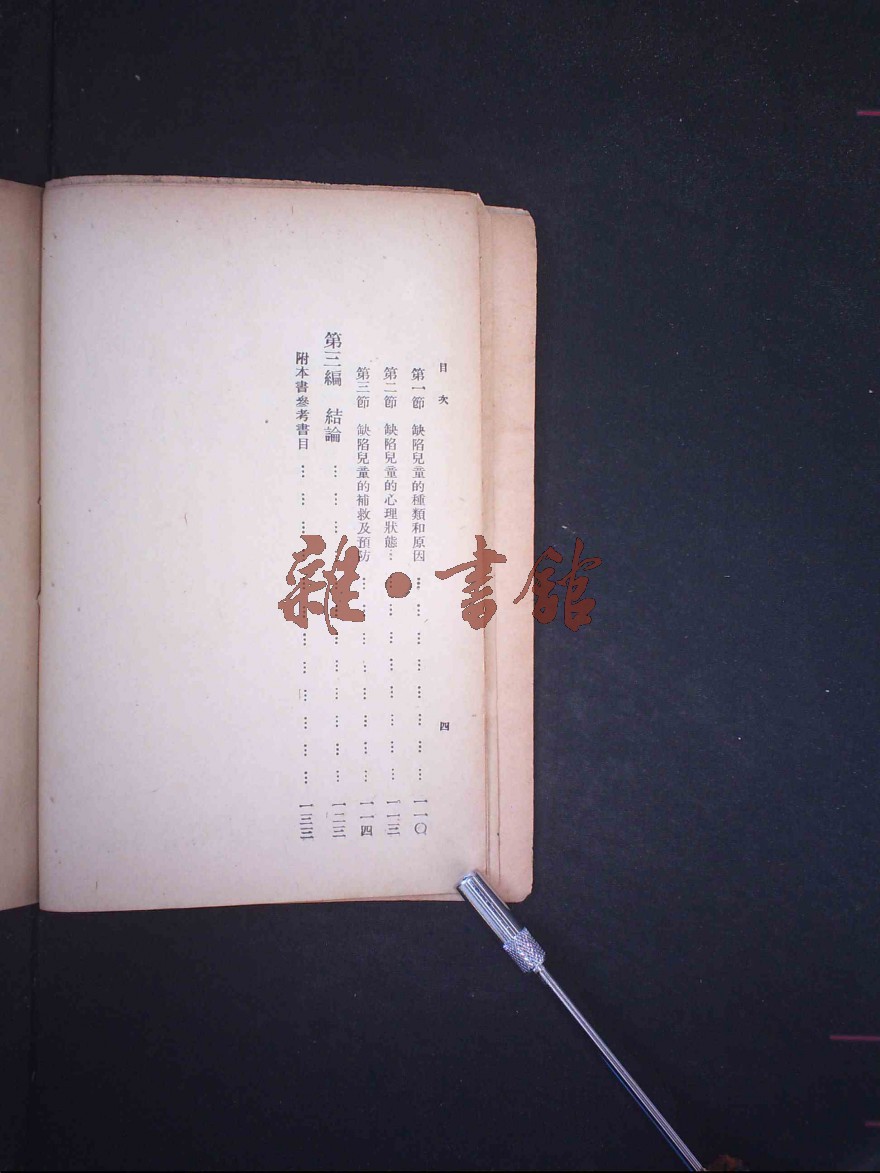 目次 四
第一節 缺陷兒童的種類和原因 … … … … … … … … 一一〇
第二節 缺陷兒童的心理狀態 … … … … … … … … … 一一三
第三節 缺陷兒童的補救及預防 … … … … … … … … 一一四
第三編 結論 … … … … … … … … … … … … 一二三
附本書參考書目 … … … … … … … … … … … … 一三三
雜·書館